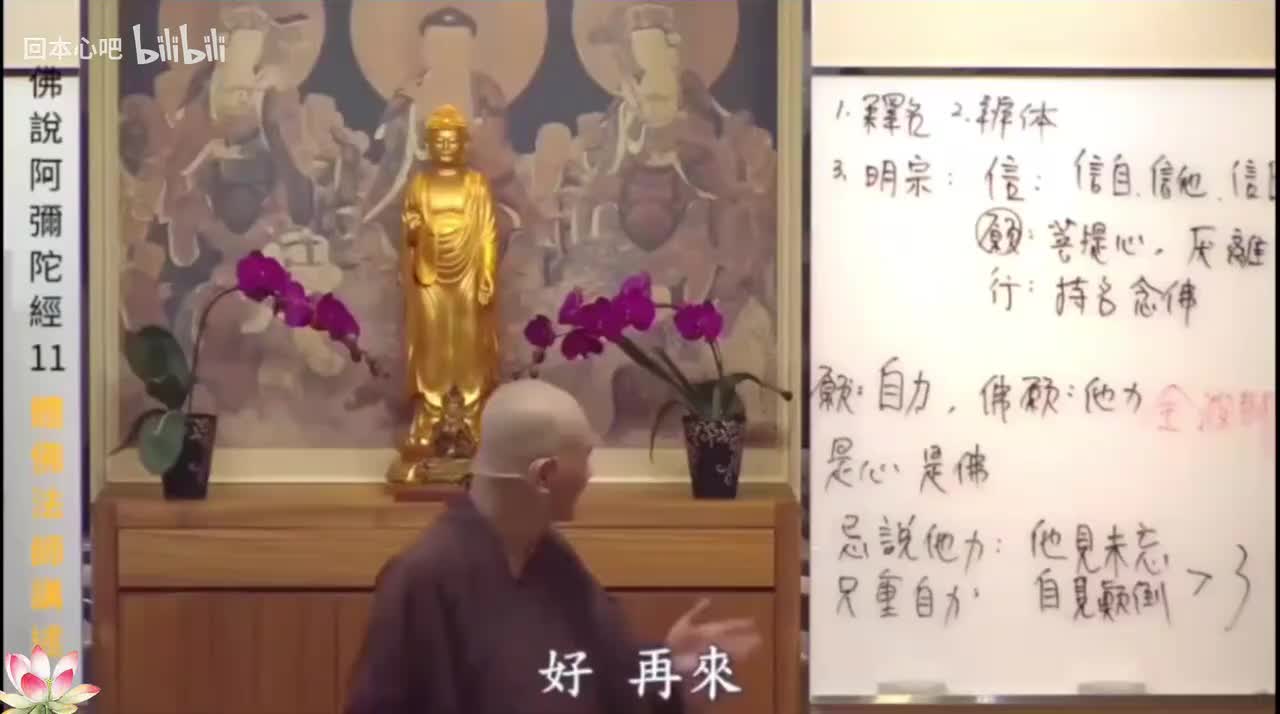 回本心吧 bilibili
佛說阿彌陀經11 體佛法師講述
1. 釋名 2. 辨体
3. 明宗: 信: 信自、信他、信
願: 菩提心, 厌離
行: 持名念佛
願: 自力, 佛願: 他力
是心是佛
忌說他力: 他見未忘
只重自力: 自見顛倒
好 再來